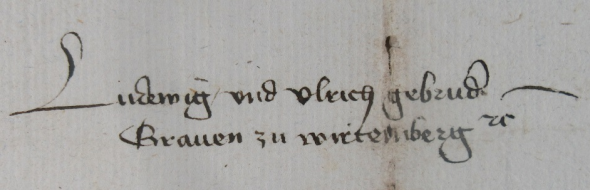 Ludewig vnd Vlrich gebruder
Grauen zu wirtemberg ꝛc